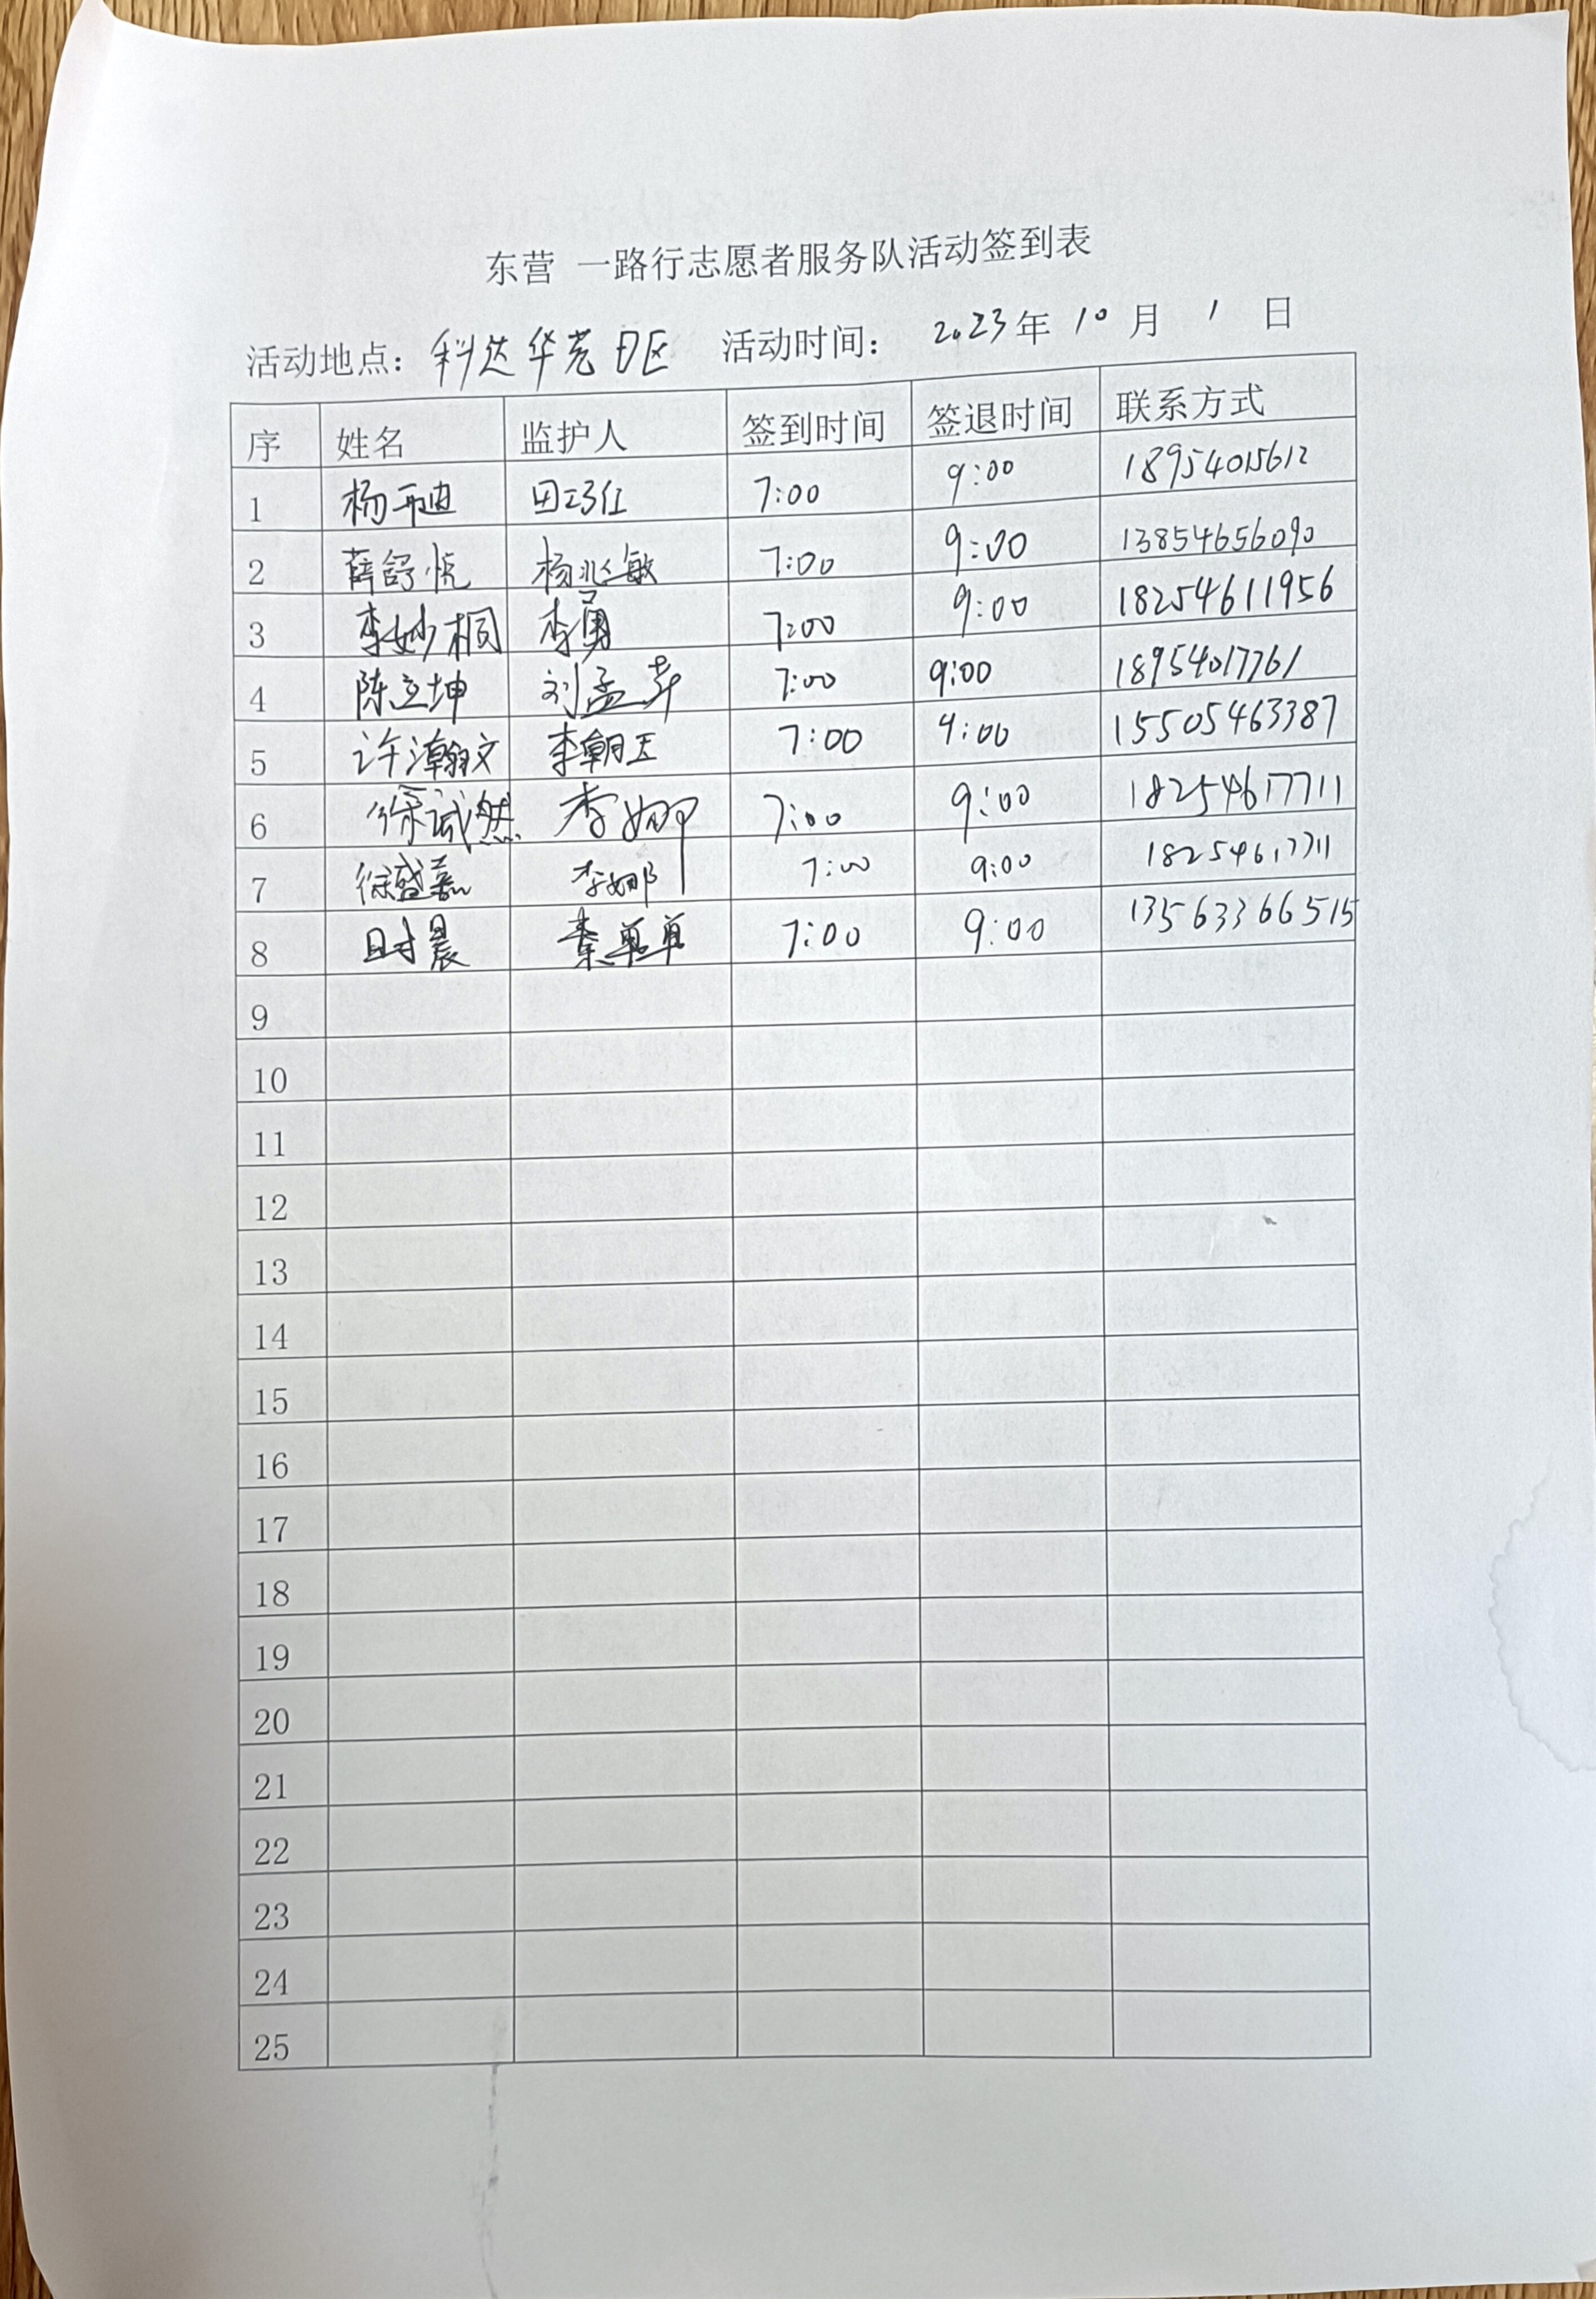 东营 一路行志愿者服务队活动签到表
活动地点：科达华苑日区 活动时间： 2023年 10 月 1 日
序 姓名 监护人 签到时间 签退时间 联系方式
1 杨 7:00 9:00 18954015612
2 薛舒悦 杨兆敏 7:00 9:00 13854656090
3 李妙桐 李勇 7:00 9:00 18254611956
4 陈立坤 刘孟 7:00 9:00 18954017761
5 许瀚文 李朝玉 7:00 9:00 15505463387
6 徐诚然 李娜 7:00 9:00 18254617711
7 徐盛嘉 李娜 7:00 9:00 18254617711
8 晨 秦单单 7:00 9:00 13563366515
9
10
11
12
13
14
15
16
17
18
19
20
21
22
23
24
25